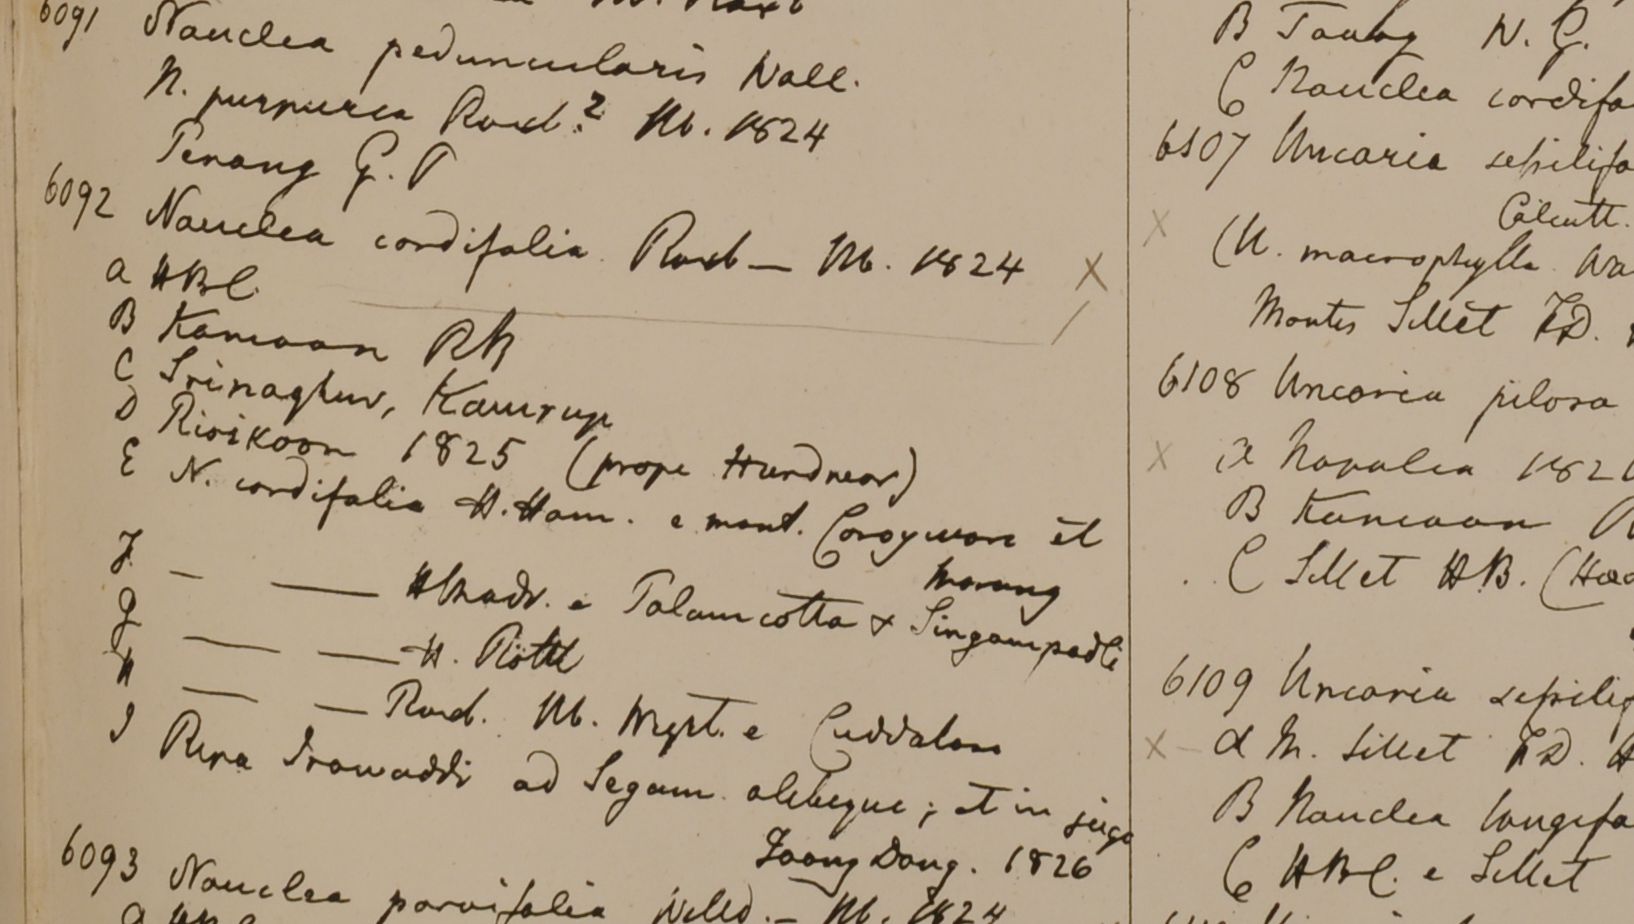 6091 Nauclea peduncularis Wall.
N. purpurea Roxb.? M. 1824
Penang G. P
6092 Nauclea cordifolia Roxb — M. 1824
a HBC.
B Kamaon RB
C Srinaghur, Kamrup
D Risikoon 1825 (prope Hurdwar)
E N. cordifolia H. Ham. e mont. Gorogwore et
Morung
F — — HMadr. e Palamcotta & Singampadti
G — — H. Röttl
H — — Roxb. M. Wight. e Cuddalore
I Ripa Irawaddi ad Segam alibique; et in juga
Toong Dong. 1826
6093 Nauclea parvifolia Willd. — M. 1824
B Toung N. G.
C Nauclea cordifo
6107 Uncaria sessilifo
Calcutt.
(U. macrophylla Wa
Montes Sillet FD.
6108 Uncaria pilosa
a Napalia 182
B Kamaon R
C Sillet HB. (Hoo
6109 Uncaria sessilif
a M. Sillet FD. H
B Nauclea longifo
C HBC. e Sillet